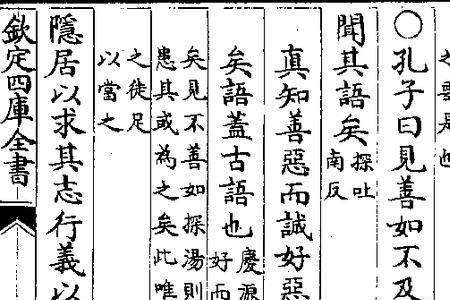 是也
○孔子曰見善如不及
聞其語矣
探吐
南反
真知善惡而誠好惡
矣語蓋古語也
慶源
好而
矣見不善如探湯則
患其或為之矣此唯
之徒足
以當之
隱居以求其志行義以
欽定四庫全書